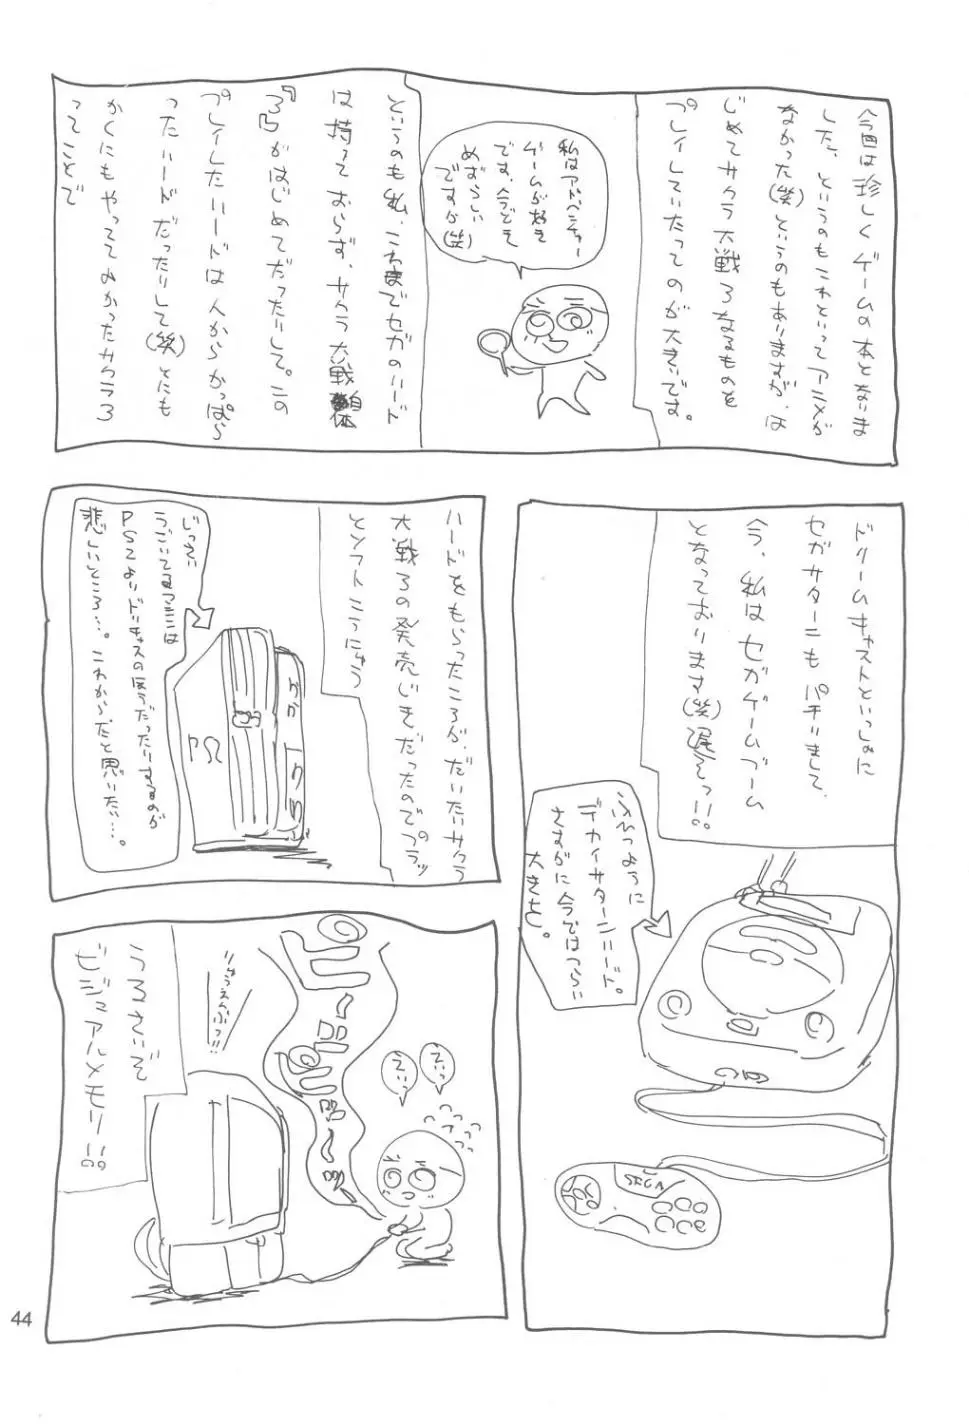 今回は珍しくゲームの本となりま
した。というのもこれといってアニメが
なかった(笑)というのもありますが、は
じめてサクラ大戦3なるものを
プレイしていたってのが大きいです。
私はアドベンチャー
ゲームが好き
です。今どき
めずらしい
ですが(笑)
というのも私、これまでセガのハード
は持っておらず、サクラ大戦自体
『3』がはじめてだったりして。この
プレイしたハードは人からかっぱら
ったハードだったりして(笑)とにも
かくにもやっててよかったサクラ3
ってことで
ドリームキャストといっしょに
セガサターンもパチりまして、
今、私はセガゲームブーム
となっております(笑)遅そっ!!
ふつーように
デカイサターンハード。
さすがに今ではつらい
大きさ。
SEGA
ハードをもらったころが、だいたいサクラ
大戦3の発売じきだったのでプラッ
とソフトこうにゅう
じっさい
うごいてるアニメは
PS2よりドリキャスのほうだったりするのが
悲しいところ…。これからだと思いたい…。
PS2
うるさいぞ
ビジュアルメモリー!!
ピーーー
えいっ
えいっ
44